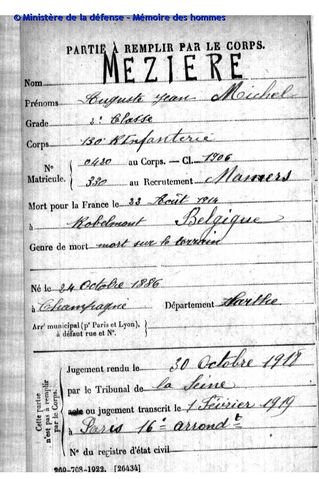 © Ministère de la défense - Mémoire des hommes
PARTIE À REMPLIR PAR LE CORPS.
Nom MEZIERE
Prénoms Auguste Jean Michel
Grade 2e Classe
Corps 130e R. Infanterie
N° Matricule. { 0430 au Corps. — Cl. 1906
330 au Recrutement Mamers
Mort pour la France le 22 Août 1914
à Robelmont Belgique
Genre de mort mort sur le terrain
Né le 24 Octobre 1886
à Champagné Département Sarthe
Arrt municipal (pr Paris et Lyon), à défaut rue et N°.
Cette partie n'est pas à remplir par le Corps.
Jugement rendu le 30 Octobre 1918
par le Tribunal de la Seine
acte ou jugement transcrit le 1 Février 1919
à Paris 16e arrondt
N° du registre d'état civil
260-708-1922. [26434]